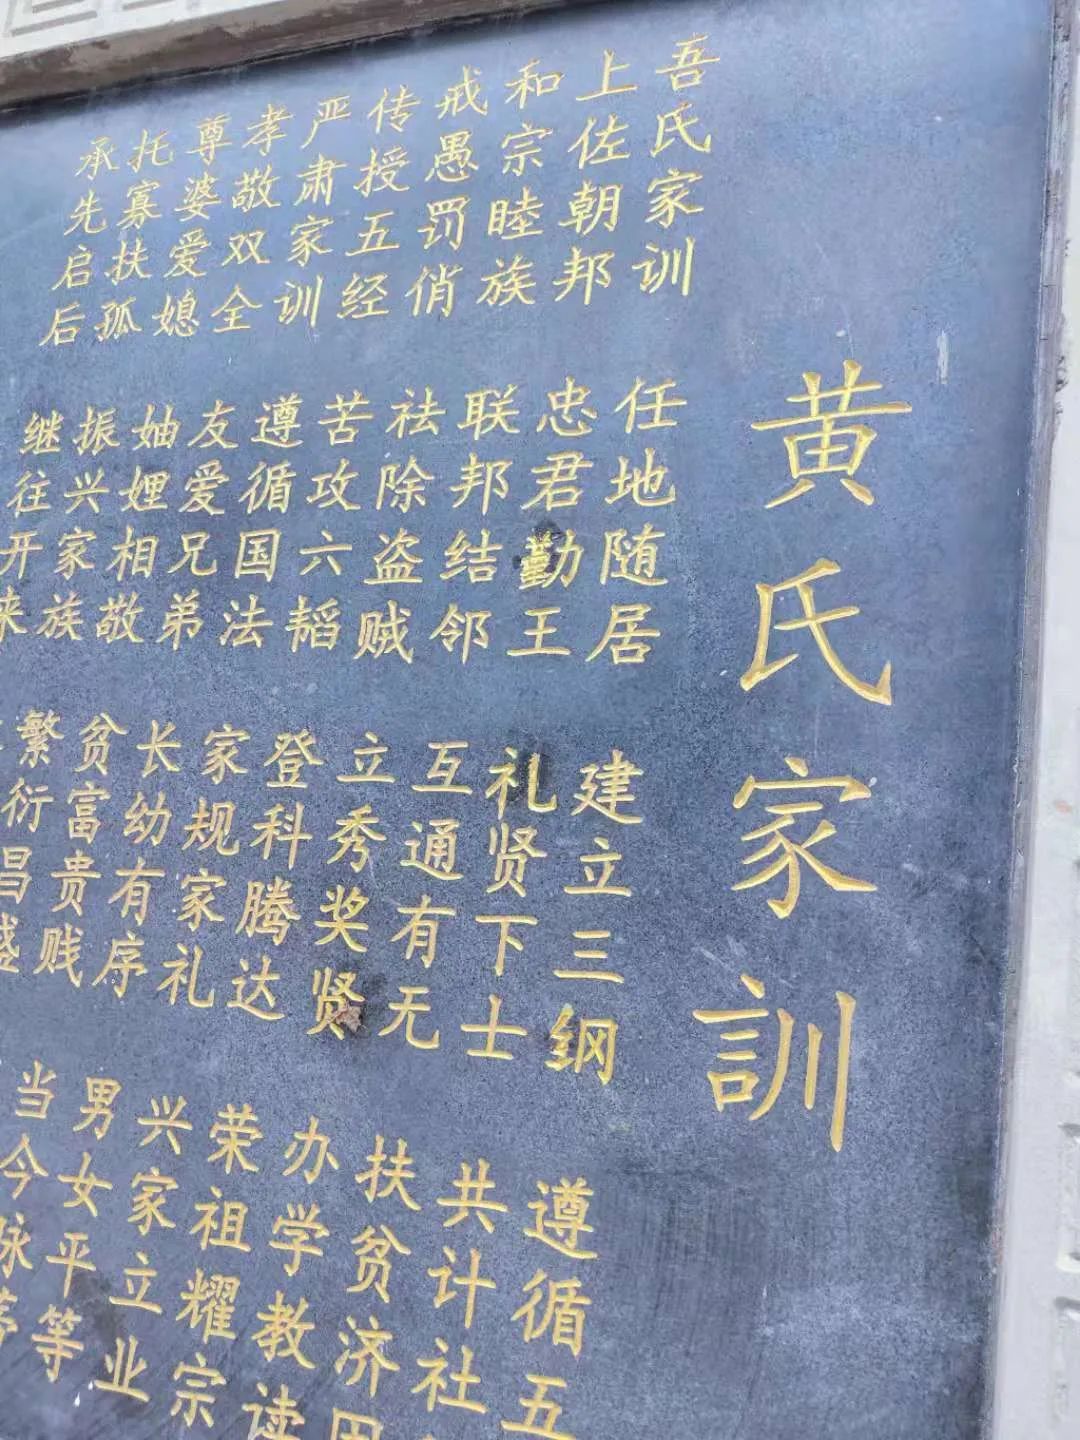 黄氏家訓
吾氏家训 任地随居 建立三纲 遵循五
上佐朝邦 忠君勤王 礼贤下士 共计社
和宗睦族 联邦结邻 互通有无 扶贫济
戒愚罚俏 祛除盗贼 立秀奖贤 办学教读
传授五经 苦攻六韬 登科腾达 荣祖耀宗
严肃家训 遵循国法 家规家礼 兴家立业
孝敬双全 友爱兄弟 长幼有序 男女平等
尊婆爱媳 妯娌相敬 贫富贵贱 当今
托寡扶孤 振兴家族 繁衍昌盛
承先启后 继往开来